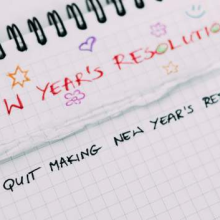 W YEAR'S RESOLUTIO
QUIT MAKING NEW YEAR'S RE